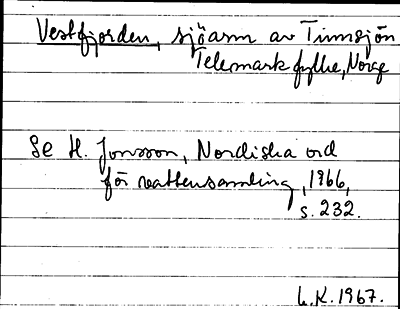 Vestfjorden, sjöarm av Tinnsjön
Telemark fylke, Norge
Se H. Jonsson, Nordiska ord
för vattensamling, 1966,
s. 232.
L.K. 1967.